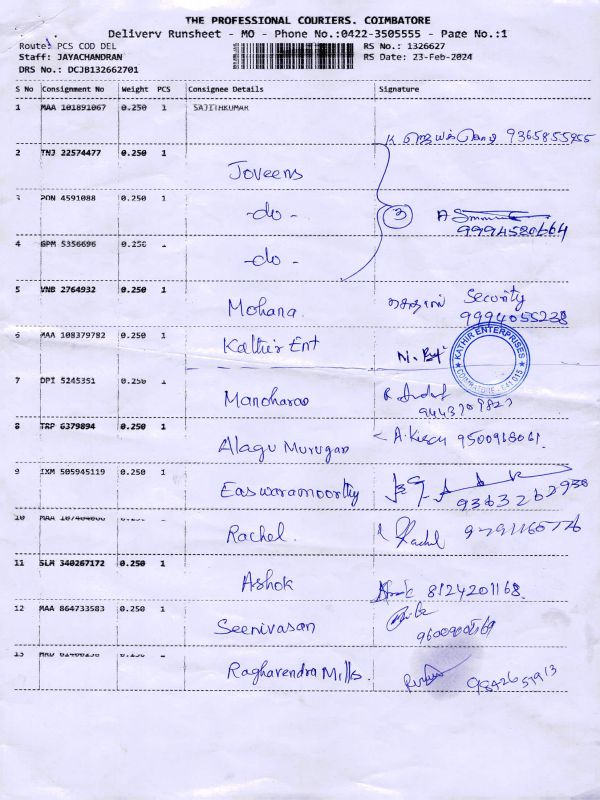 THE PROFESSIONAL COURIERS. COIMBATORE
Delivery Runsheet - MO - Phone No.:0422-3505555 - Page No.:1
Route: PCS COD DEL
RS No.: 1326627
Staff: JAYACHANDRAN
RS Date: 23-Feb-2024
DRS No.: DCJB132662701
S No Consignment No Weight PCS Consignee Details Signature
1 MAA 101891067 0.250 1 SAJITHKUMAR
9365855955
2 TNJ 22574477 0.250 1 Joveens
3 PON 4591088 0.250 1 -do-
3
9994580664
4 GPM 5356696 0.250 -do-
5 VNB 2764932 0.250 1 Mohana. Security
9994055238
6 MAA 108379782 0.250 1 Kathir Ent
KATHIR ENTERPRISES
COIMBATORE - 641 015
7 DPI 5245351 0.250 1 Manoharao
8 TRP 6379894 0.250 1 Alagu Murugan 9500968061
9 IXM 505945119 0.250 1 Easwaramoorthy
9363262938
10 MAA 0.250 Rachel. Rachel
11 SLM 340267172 0.250 1 Ashok 8124201168.
12 MAA 864733583 0.250 1 Seenivasan
13 Raghavendra Mills.